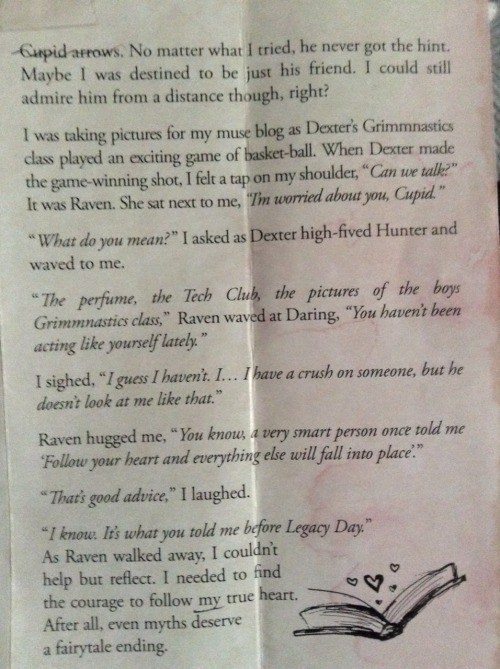 Cupid arrows. No matter what I tried, he never got the hint.
Maybe I was destined to be just his friend. I could still
admire him from a distance though, right?
I was taking pictures for my muse blog as Dexter's Grimmnastics
class played an exciting game of basket-ball. When Dexter made
the game-winning shot, I felt a tap on my shoulder, "Can we talk?"
It was Raven. She sat next to me, "I'm worried about you, Cupid."
"What do you mean?" I asked as Dexter high-fived Hunter and
waved to me.
"The perfume, the Tech Club, the pictures of the boys
Grimmnastics class," Raven waved at Daring, "You haven't been
acting like yourself lately."
I sighed, "I guess I haven't. I... I have a crush on someone, but he
doesn't look at me like that."
Raven hugged me, "You know, a very smart person once told me
'Follow your heart and everything else will fall into place'."
"That's good advice," I laughed.
"I know. It's what you told me before Legacy Day."
As Raven walked away, I couldn't
help but reflect. I needed to find
the courage to follow my true heart.
After all, even myths deserve
a fairytale ending.